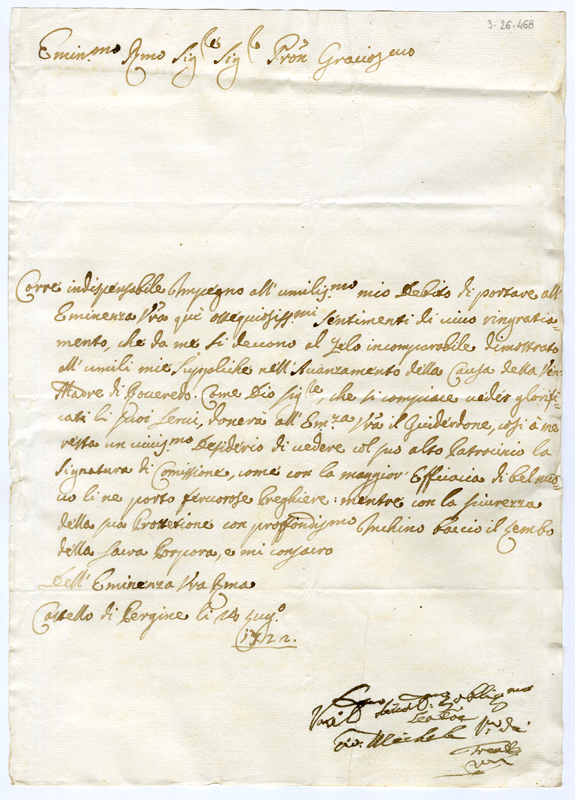 3-26-468
Emin.mo Rmo Sig.re Sig.re Pron Gracios.mo
Corre indispensabile Impegno all' umilis.mo mio Debito di portare all'
Eminenza Vra que' ossequiosiss.mi sentimenti di vivo ringratia=
mento, che da me si devono al Zelo incomparabile dimostrato
all' umili mie suppliche nell' Avanzamento della Causa della Ven:
Madre di Roveredo. Come Dio sig.re, che si compiace veder glorifi=
cati li suoi servi, donerà all' Em.za Vrã il Guiderdone, così à me
resta un vivis.mo Desiderio di vedere col suo alto Patrocinio la
signatura di Comissione, come con la maggior Efficacia di bel nuo=
vo li ne porto fervorose Preghiere: mentre con la sicurezza
della sua Protetione con profondis.mo Inchino baccio il Lembo
della sacra Porpora, e mi consacro
Dell' Eminenza Vra Rma
Castello di Pergine li 28 Lug.o
1722.
Gio: Michele V.o di
Trento